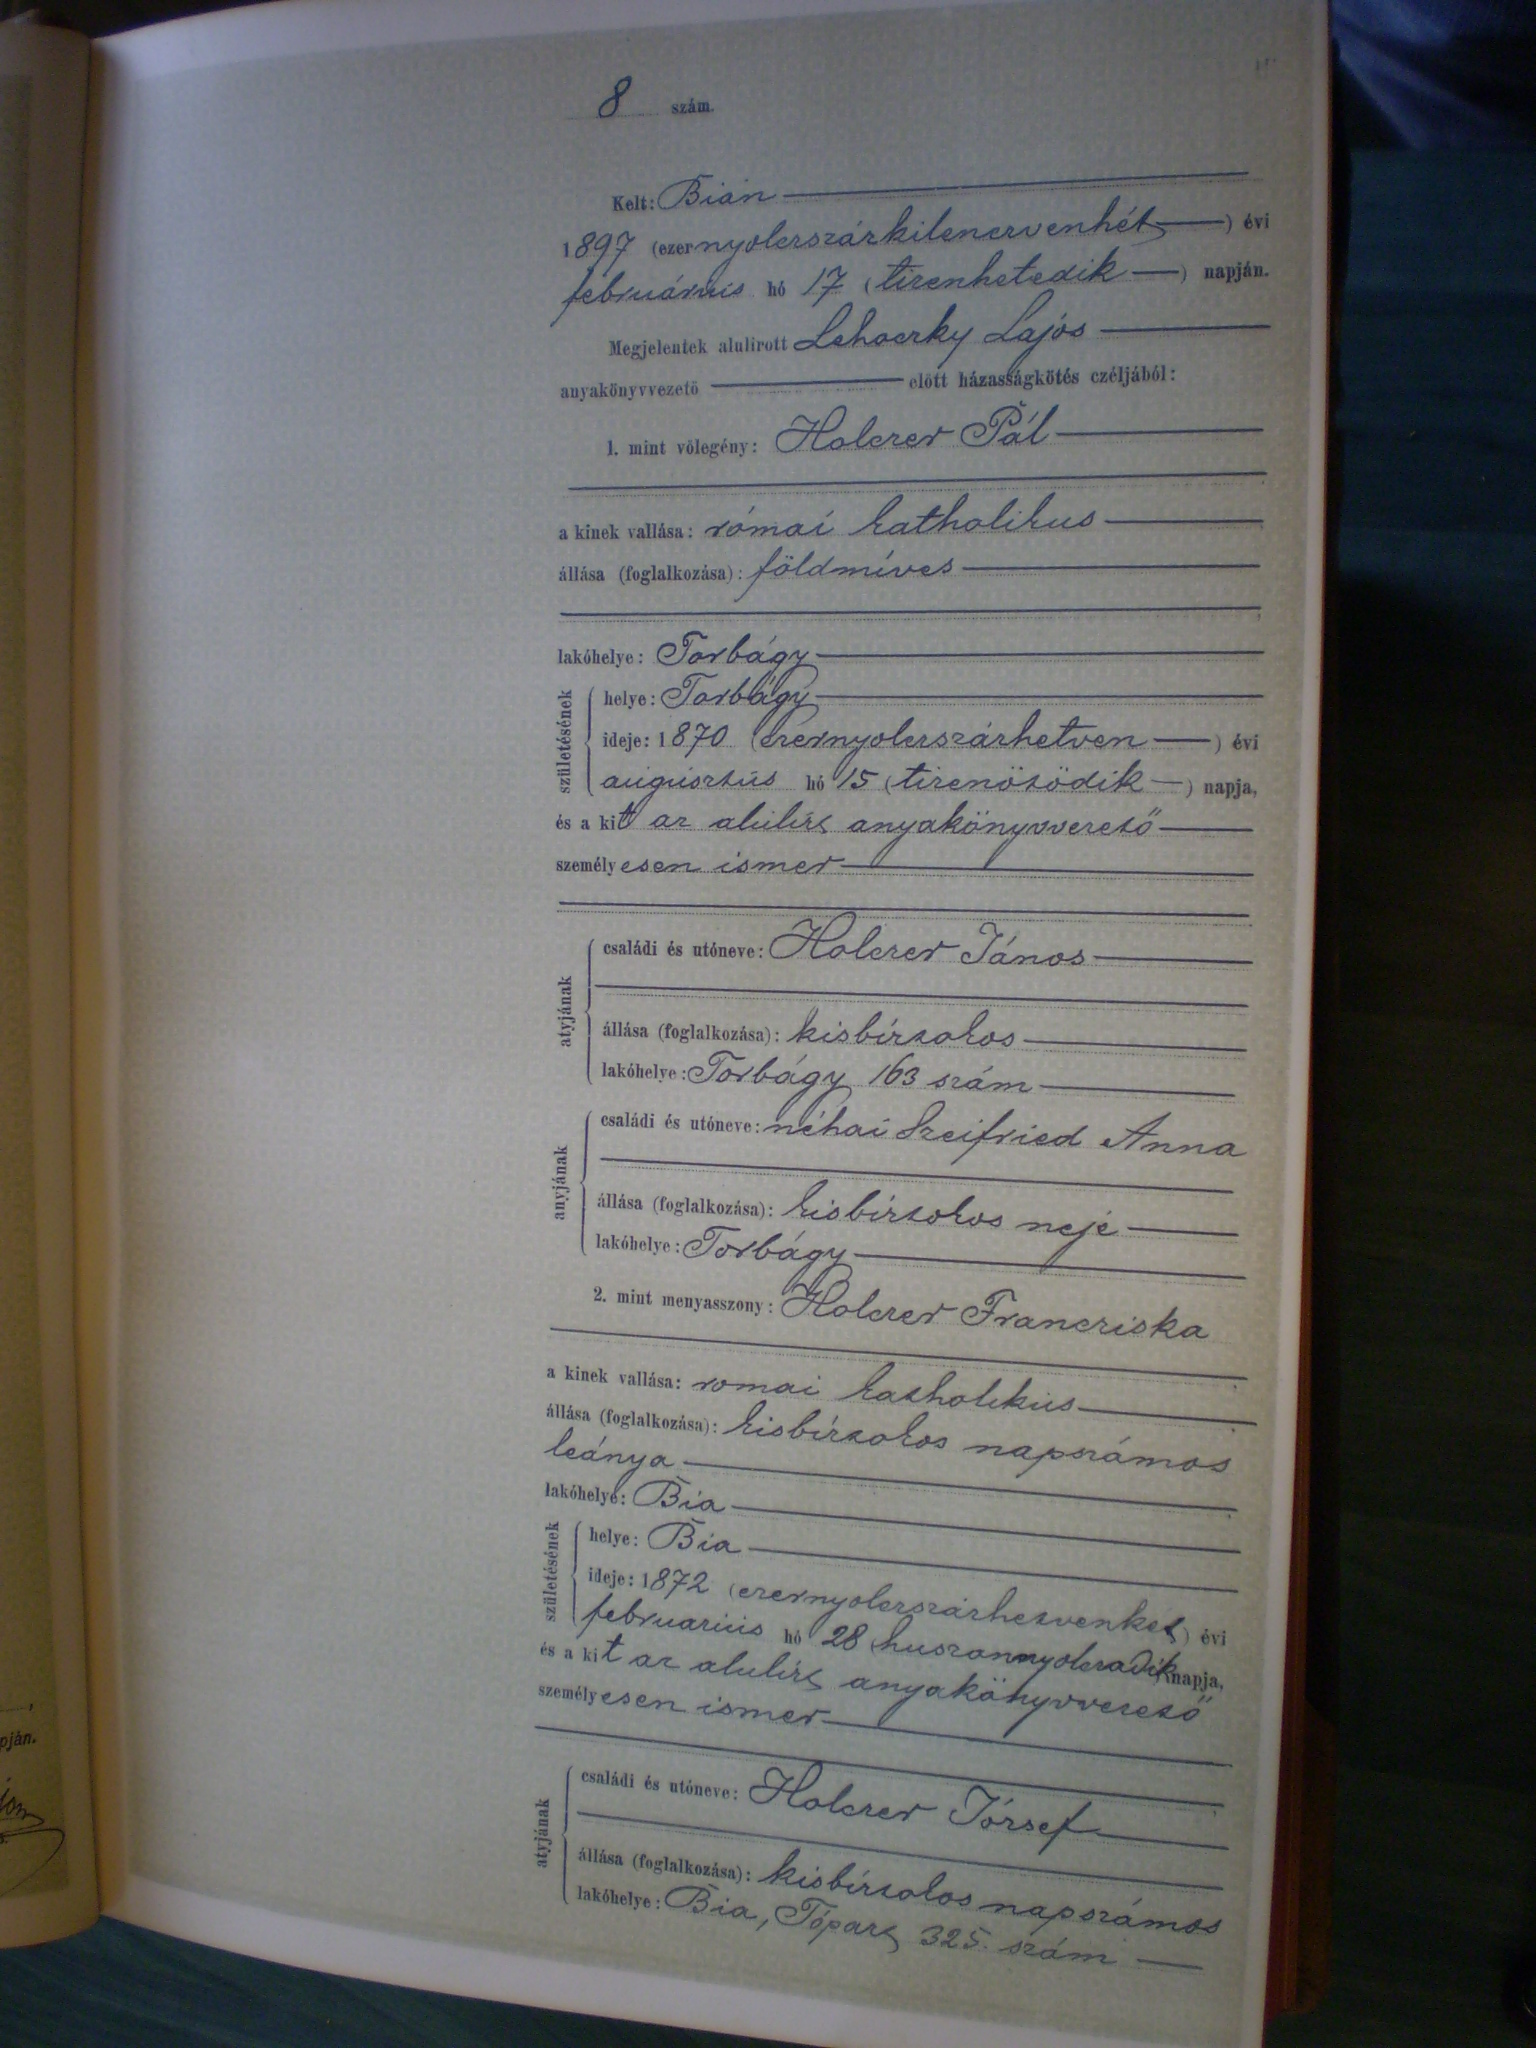 8 szám.
Kelt: Bián
1897 (ezernyolczszázkilenczvenhét) évi
februárius hó 17 (tizenhetedik) napján.
Megjelentek alulirott Lehoczky Lajos
anyakönyvvezető előtt házasságkötés czéljából:
1. mint vőlegény: Holczer Pál
a kinek vallása: római katholikus
állása (foglalkozása): földmíves
lakóhelye: Torbágy
születésének
helye: Torbágy
ideje: 1870 (ezernyolczszázhetven) évi
augusztus hó 15 (tizenötödik) napja,
és a kit az alulírt anyakönyvvezető
személyesen ismer
atyjának
családi és utóneve: Holczer János
állása (foglalkozása): kisbírtokos
lakóhelye: Torbágy 163 szám
anyjának
családi és utóneve: néhai Szeifried Anna
állása (foglalkozása): kisbírtokos neje
lakóhelye: Torbágy
2. mint menyasszony: Holczer Francziska
a kinek vallása: romai katholikus
állása (foglalkozása): kisbírtokos napszámos
leánya
lakóhelye: Bia
születésének
helye: Bia
ideje: 1872 (ezernyolczszázhetvenkét) évi
februarius hó 28 (huszonnyolczadik) napja,
és a kit az alulírt anyakönyvvezető
személyesen ismer
atyjának
családi és utóneve: Holczer József
állása (foglalkozása): kisbírtokos napszámos
lakóhelye: Bia, Tópart 325. szám
pján.